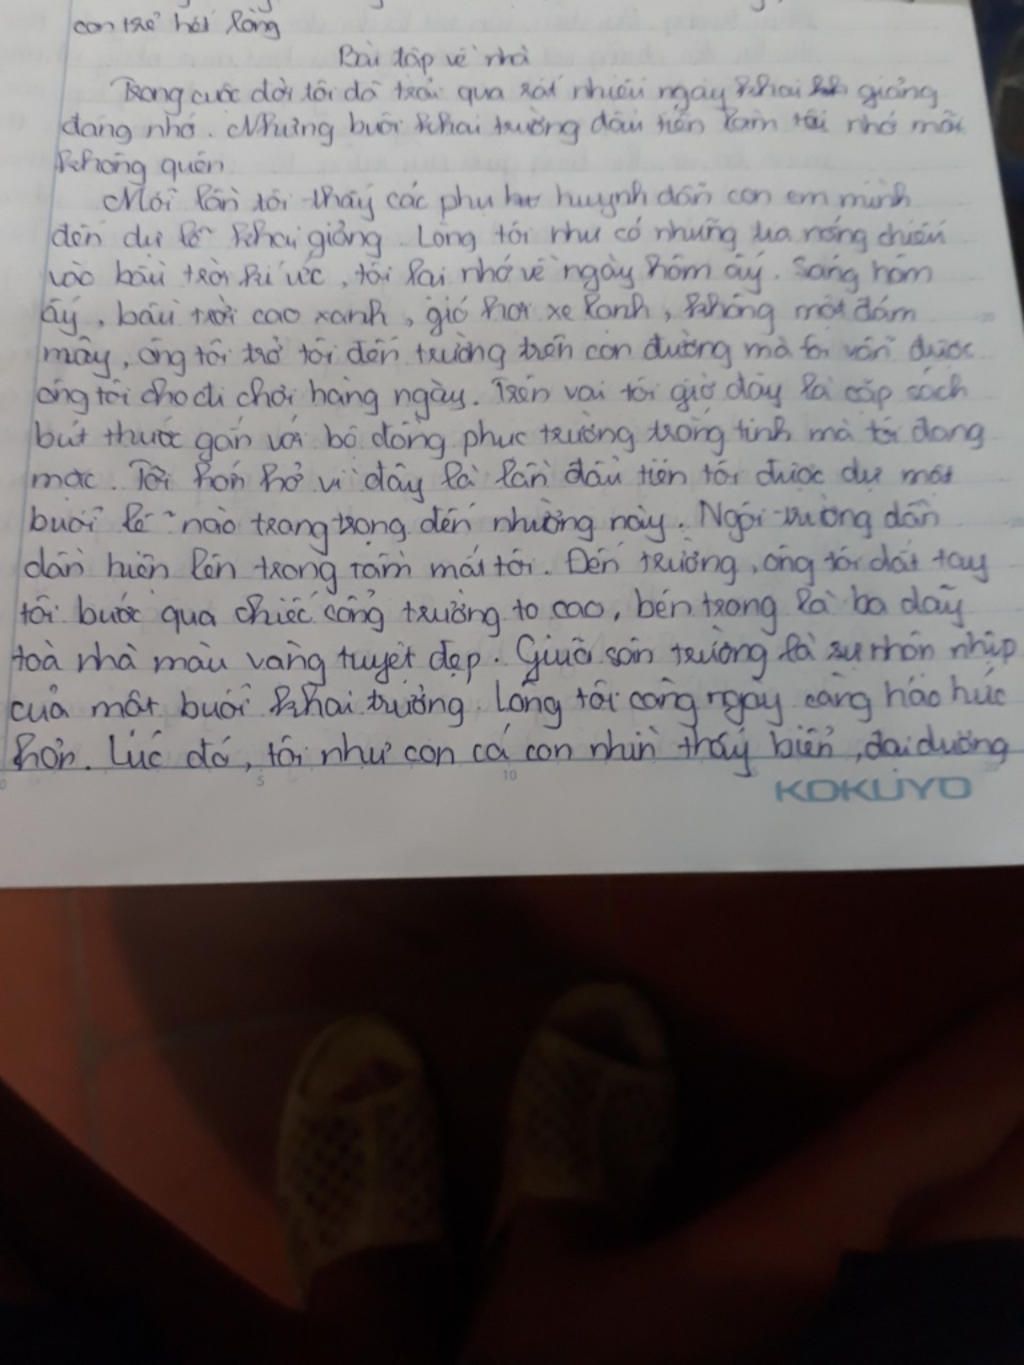 con trẻ hót lòng
Bài tập về nhà
Trong cuộc đời tôi đã trải qua rất nhiều ngày khai giảng
đáng nhớ. Nhưng buổi khai trường đầu tiên làm tôi nhớ mãi
không quên.
Mỗi lần tôi thấy các phụ huynh dẫn con em mình
đến dự lễ khai giảng. Lòng tôi như có những tia nắng chiếu
vào bầu trời kí ức, tôi lại nhớ về ngày hôm ấy. Sáng hôm
ấy, bầu trời cao xanh, gió hơi xe lạnh, không một đám
mây, ông tôi trở tôi đến trường trên con đường mà tôi vẫn được
ông tôi cho đi chơi hàng ngày. Trên vai tôi giờ đây là cặp sách
bút thước gắn với bộ đồng phục trường trắng tinh mà tôi đang
mặc. Tôi hớn hở vì đây là lần đầu tiên tôi được dự một
buổi lễ nào trang trọng đến nhường này. Ngôi trường dần
dần hiện lên trong tầm mắt tôi. Đến trường, ông tôi dắt tay
tôi bước qua chiếc cổng trường to cao, bên trong là ba dãy
toà nhà màu vàng tuyệt đẹp. Giữa sân trường là sự nhộn nhịp
của một buổi khai trường. Lòng tôi càng ngày càng háo hức
hơn. Lúc đó, tôi như con cá con nhìn thấy biển, đại dương
0 5 10
KOKUYO